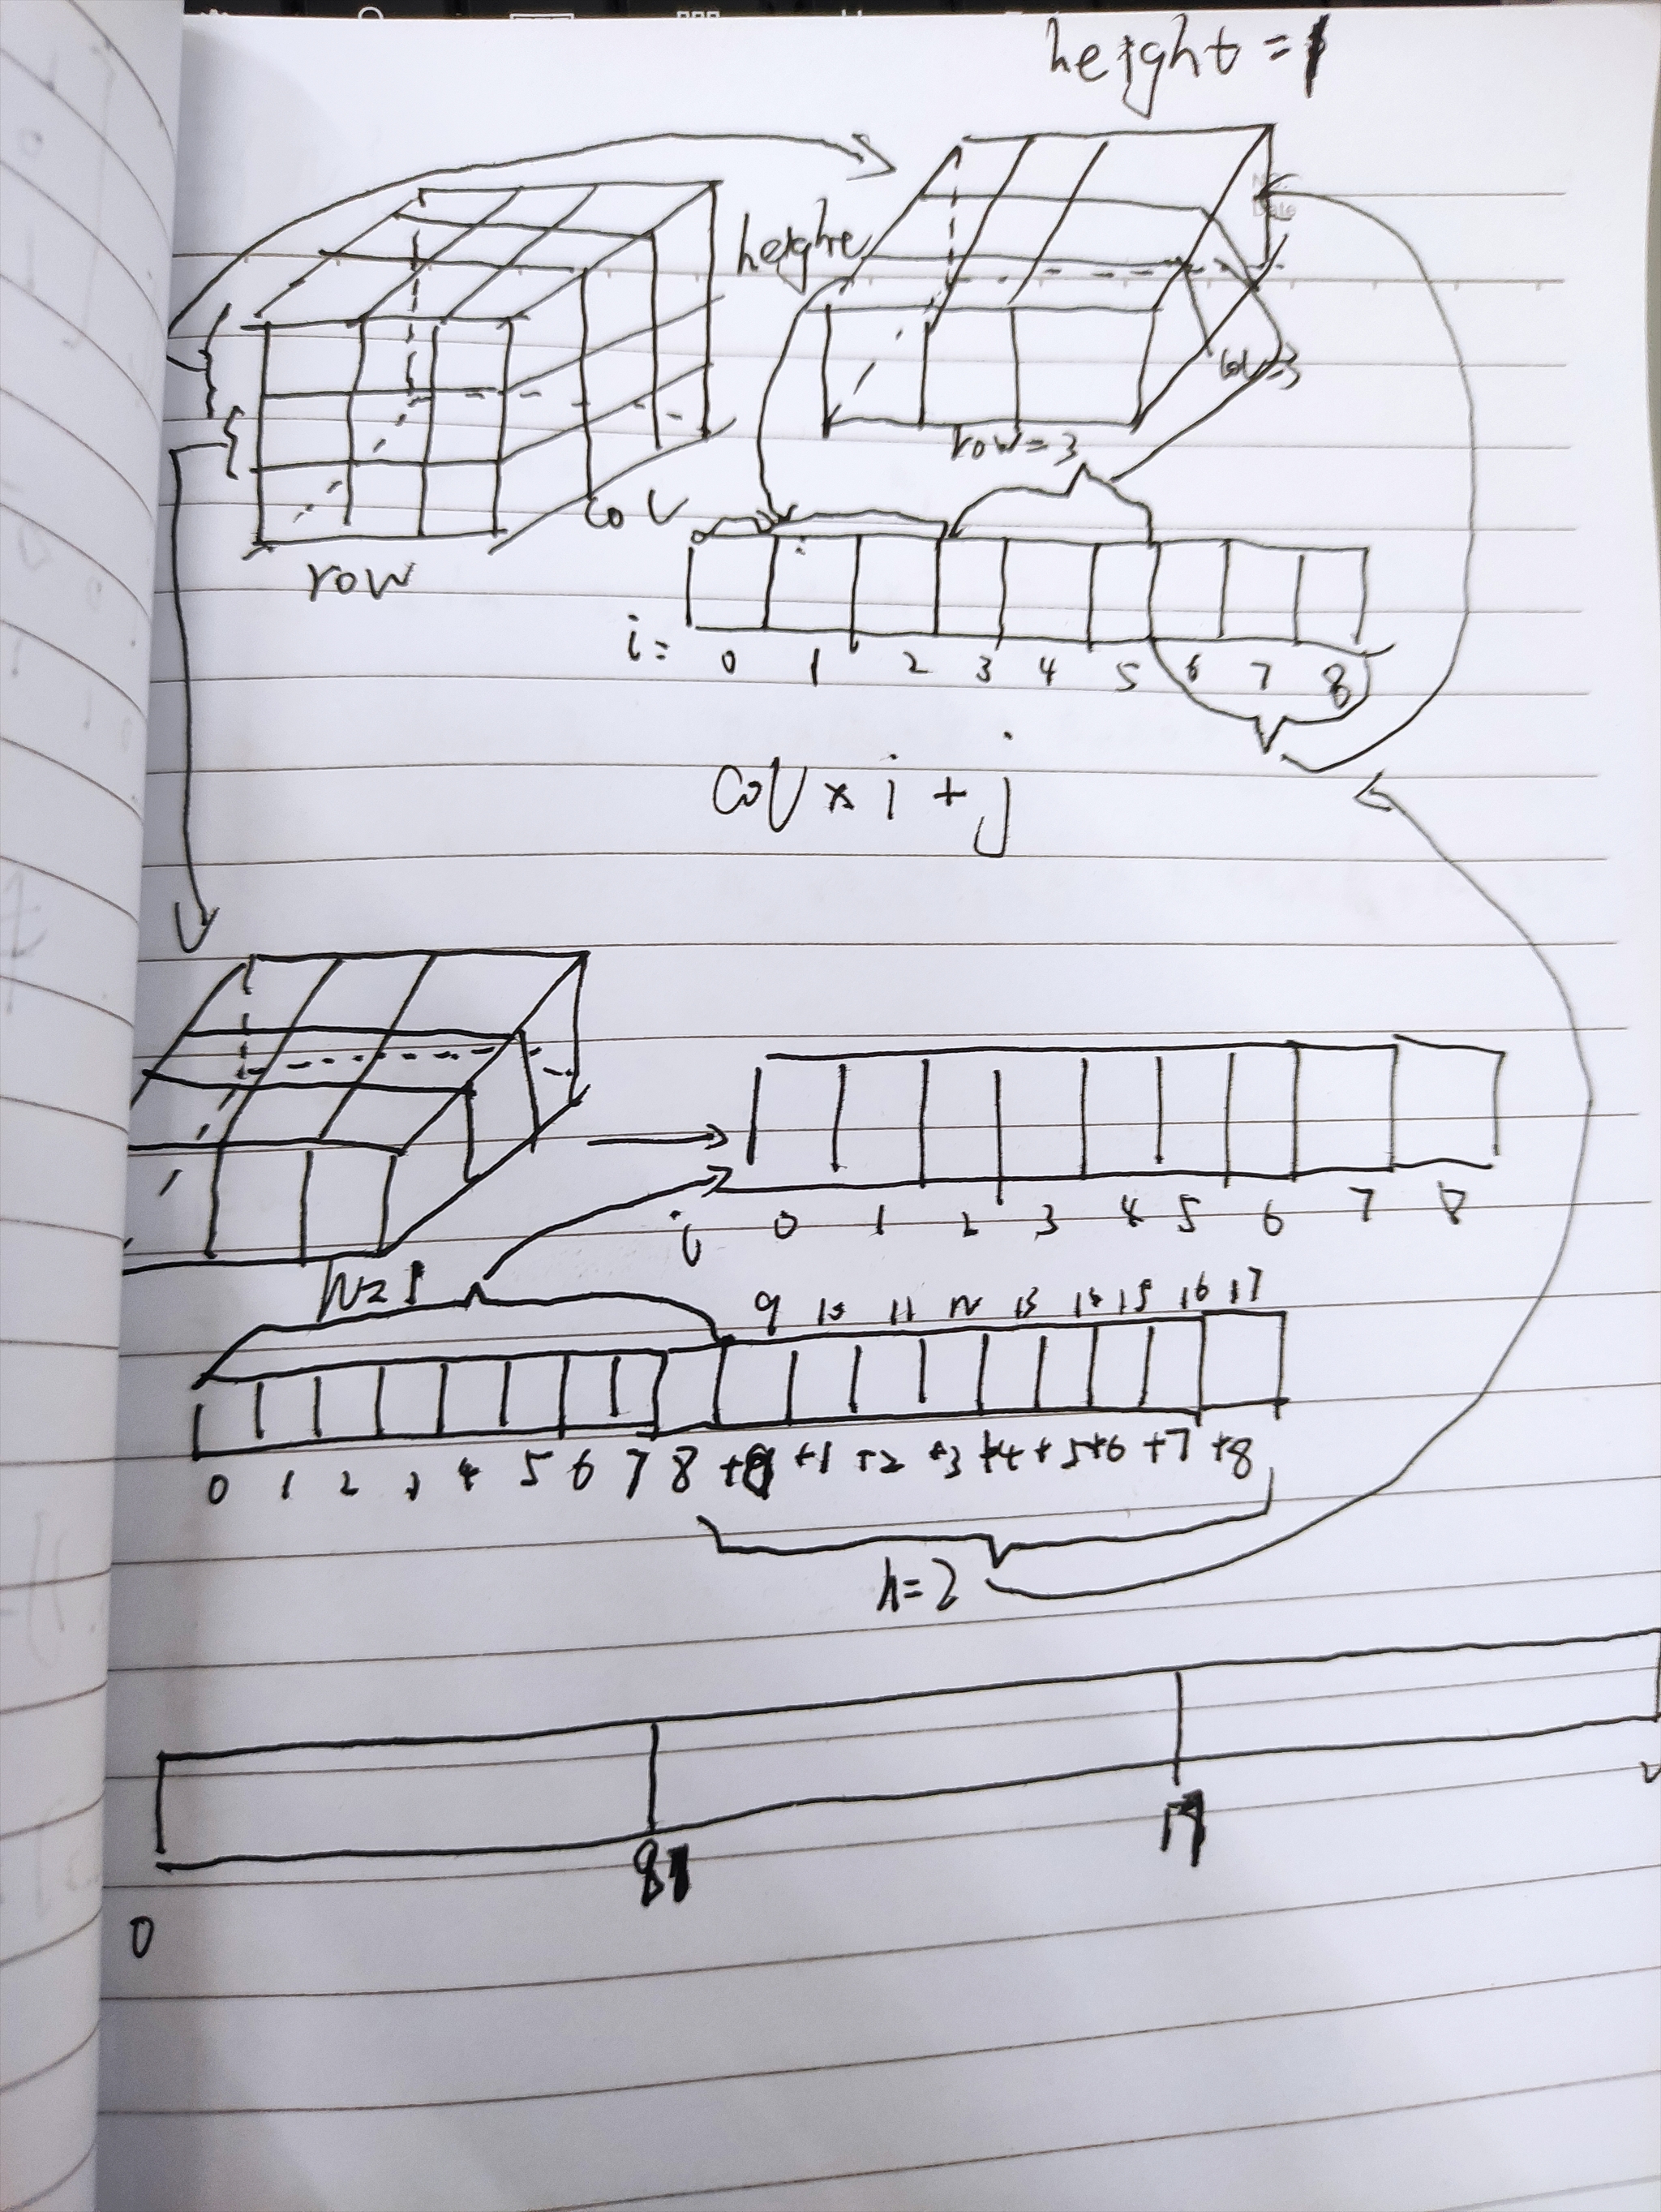 height = 1
height
col
row
col=3
row=3
i= 0 1 2 3 4 5 6 7 8
col x i + j
i 0 1 2 3 4 5 6 7 8
h=1
9 10 11 12 13 14 15 16 17
0 1 2 3 4 5 6 7 8 +0 +1 +2 +3 +4 +5 +6 +7 +8
h=2
0